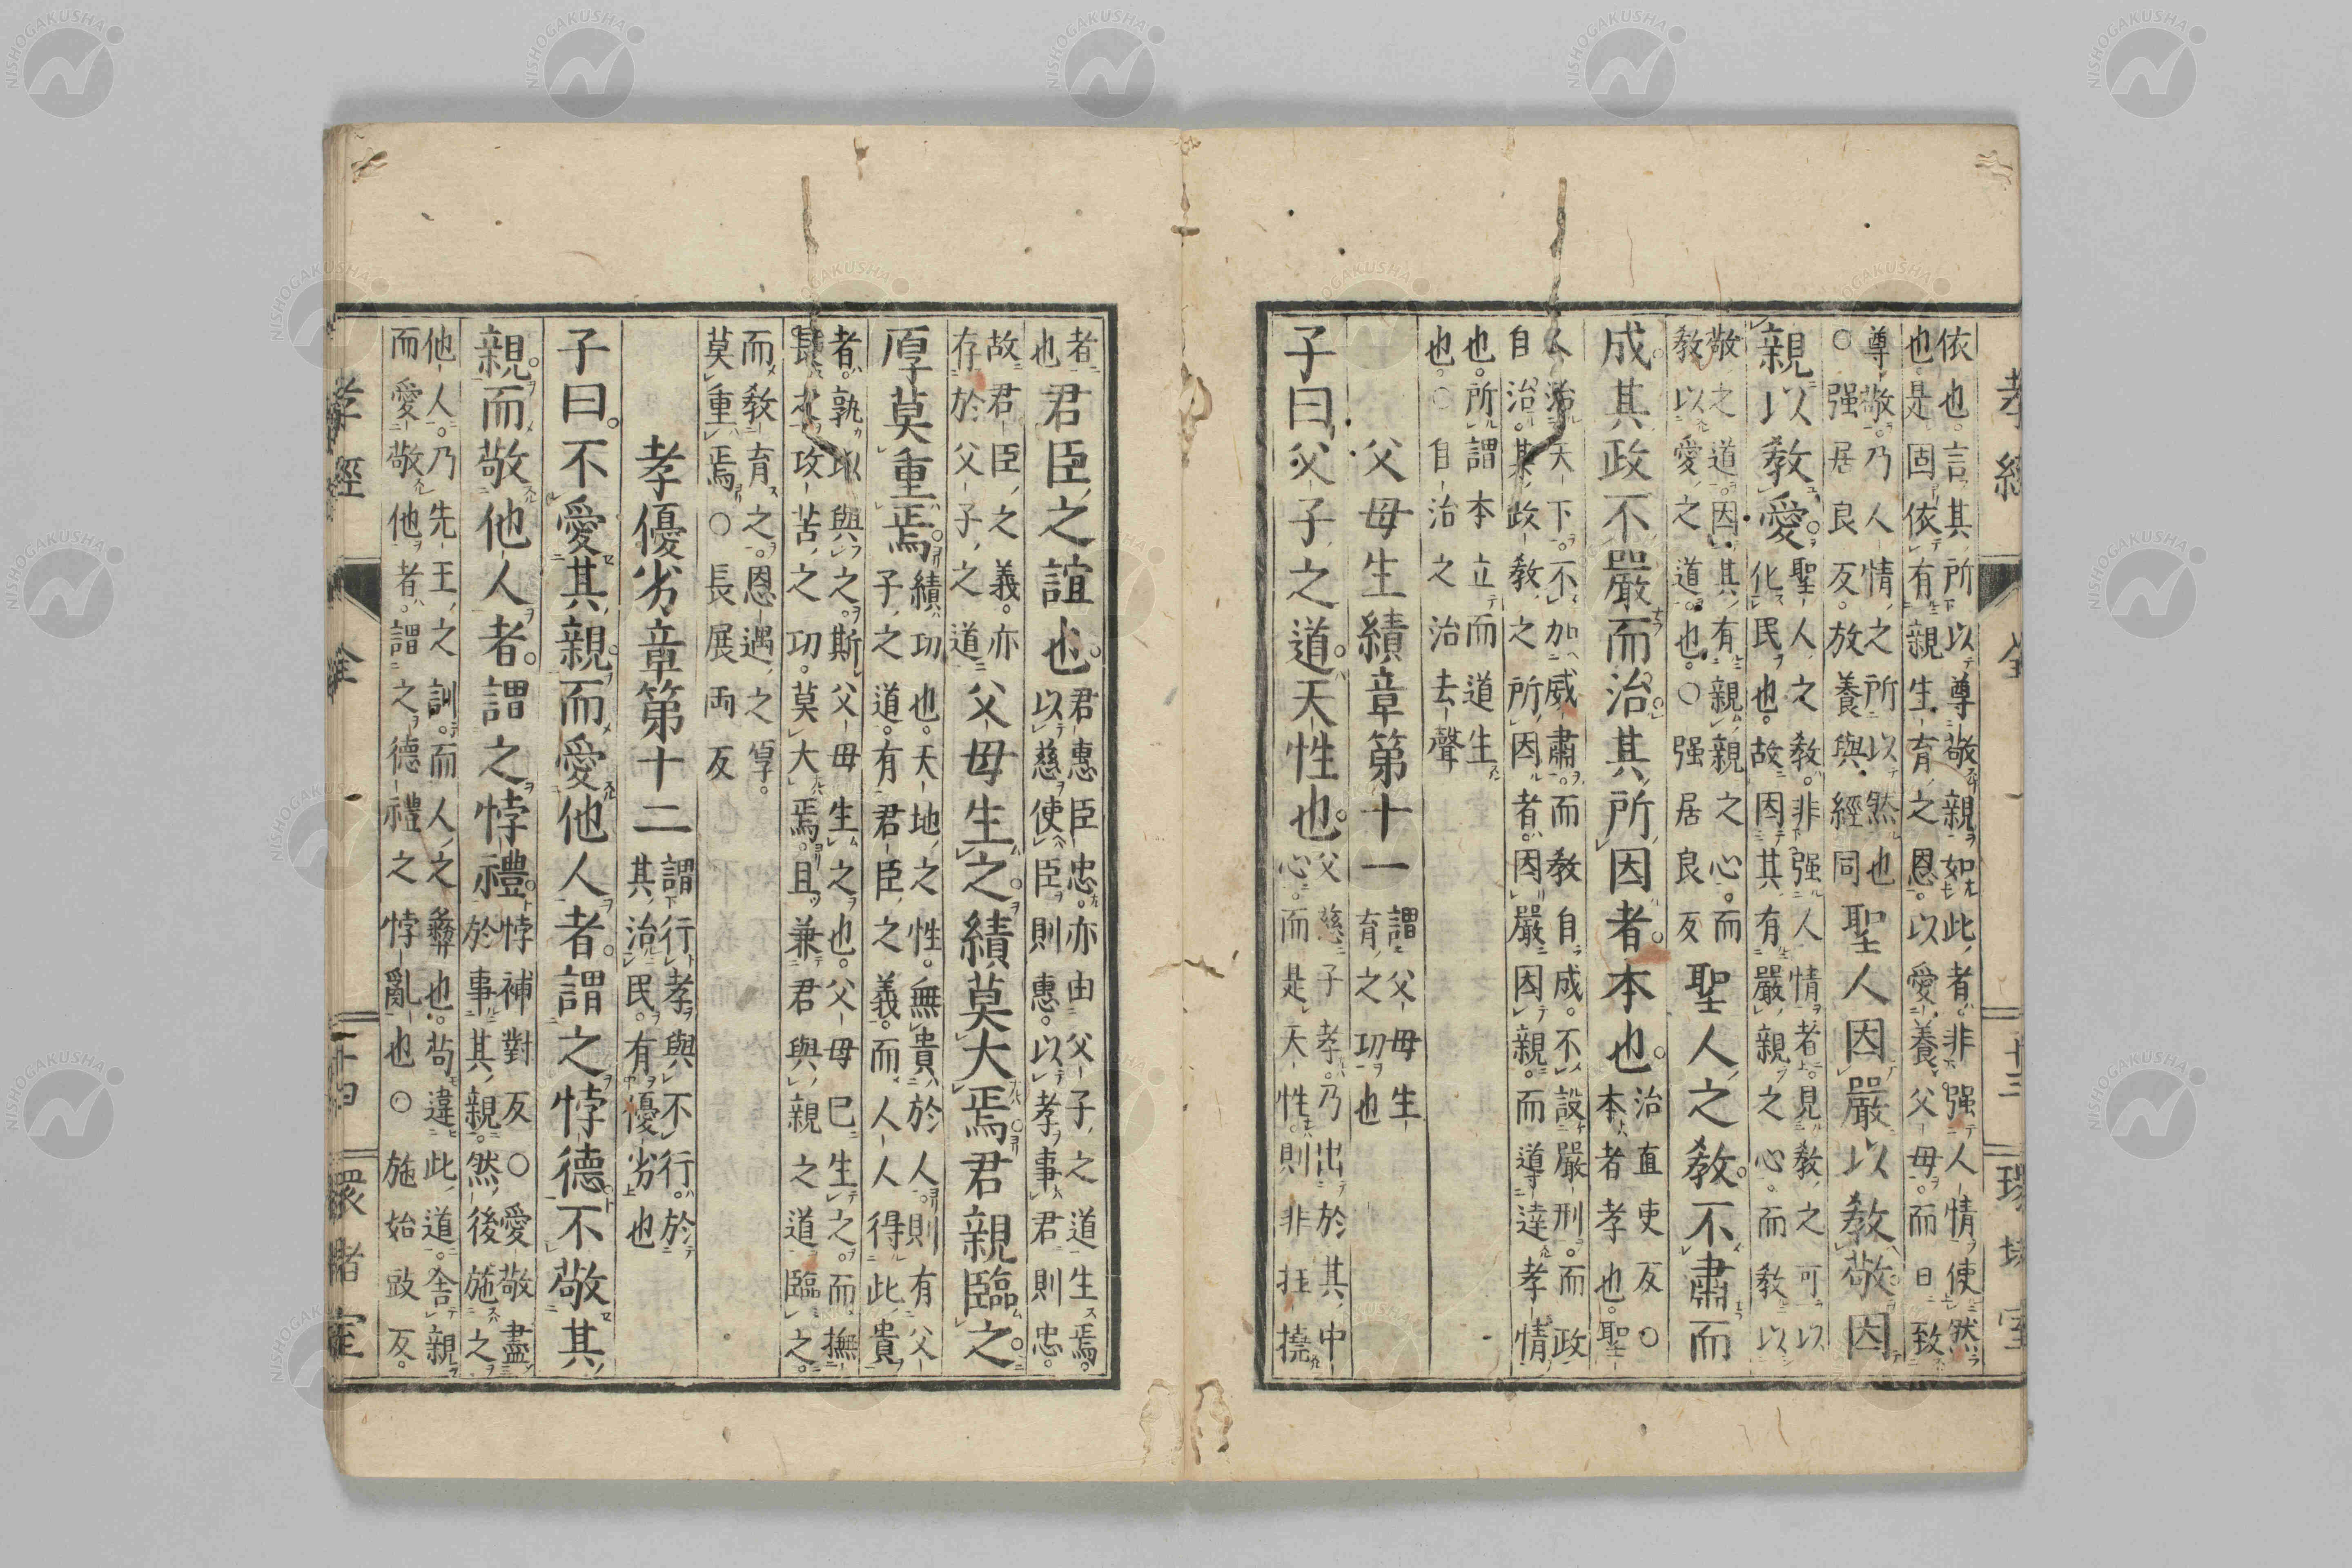 孝經 全 十三 環堵室
依也言其所以尊敬親如此者非强人情使然
也是固依有親生育之恩以愛養父母而日致
尊敬乃人情之所以然也
○强居良反放養與經同
聖人因嚴以敎敬因
親以敎愛
聖人之敎非强人情者見敎之可以
化民也故因其有嚴親之心而敎以
敬之道因其有親親之心而
敎以愛之道也○强居良反
聖人之敎不肅而
成其政不嚴而治其所因者本也
治直吏反○
本者孝也聖
人治天下不加威肅而敎自成不設嚴刑而政
自治其政敎之所因者因嚴因親而導達孝情
也所謂本立而道生
也○自治之治去聲
父母生績章第十一
謂父母生
育之功也
子曰父子之道天性也
父慈子孝乃出於其中
心而是天性則非抂撓
者
也
君臣之誼也
君惠臣忠亦由父子之道生焉
以慈使臣則惠以孝事君則忠
故君臣之義亦
存於父子之道
父母生之績莫大焉君親臨之
厚莫重焉
績功也天地之性無貴於人則有父
子之道有君臣之義而人人得此貴
者孰以與之斯父母生之也父母已生之而撫
長之攻苦之功莫大焉且兼君與親之道臨之
而敎育之恩遇之厚
莫重焉○長展両反
孝優劣章第十二
謂行孝與不行於
其治民有優劣也
子曰不愛其親而愛他人者謂之悖德不敬其
親而敬他人者謂之悖禮
悖補對反○愛敬盡
於事其親然後施之
他人乃先王之訓而人之彝也苟違此道舍親
而愛敬他者謂之德禮之悖亂也○施始豉反
孝經 全 十四 環堵室